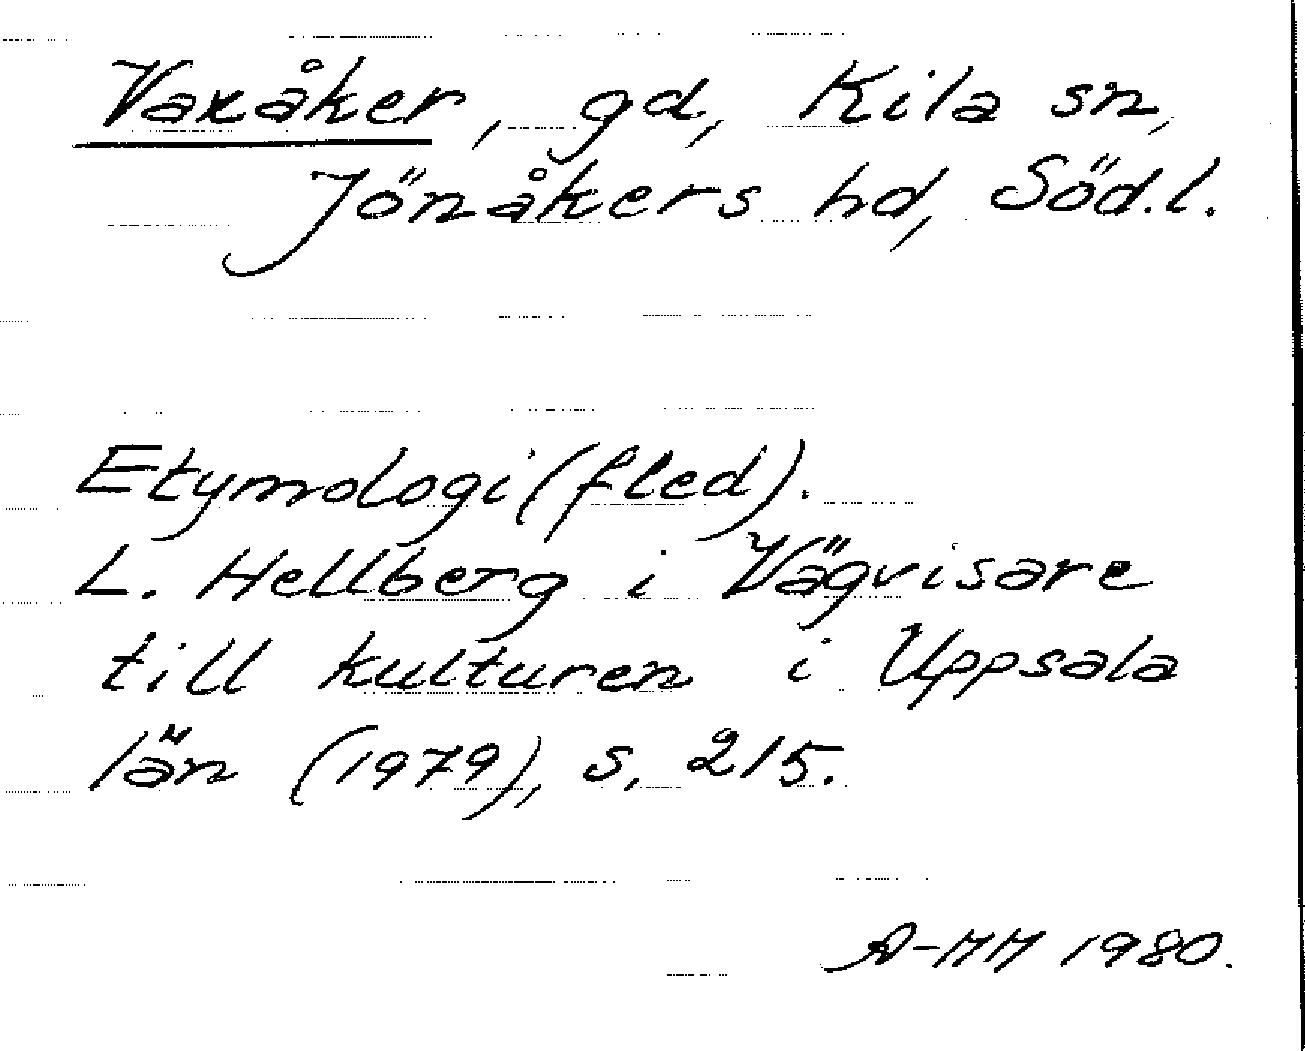 Vaxåker, gd, Kila sn,
Jönåkers hd, Söd.l.
Etymologi (fled).
L. Hellberg i Vägvisare
till kulturen i Uppsala
län (1979), s. 215.
A-MM 1980.